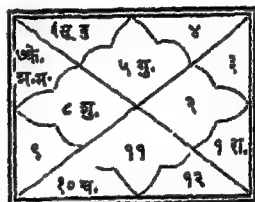 ६सू बु
४
७के.
श. मं.
५ गु.
३
८ शु.
२
९
११
१ रा.
१० च.
१२